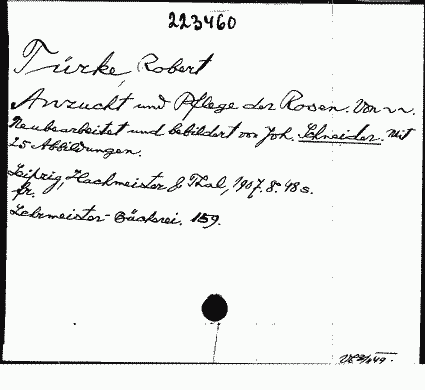 223460
Türke, Robert
Anzucht und Pflege der Rosen. Von ~~.
Neubearbeitet und bebildert von Joh. Schneider. Mit
25 Abbildungen.
Leipzig, Hachmeister & Thal, 1907. 8. 48 s.
fr.
Lehrmeister-Bücherei. 159.